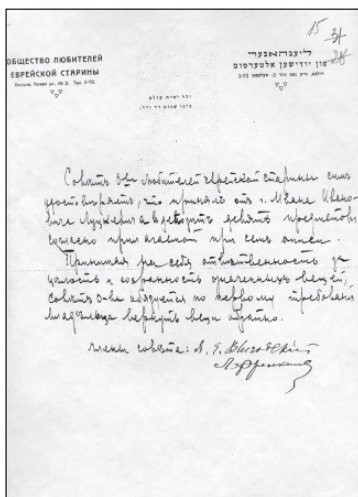 15
ОБЩЕСТВО ЛЮБИТЕЛЕЙ
ЕВРЕЙСКОЙ СТАРИНЫ
Вильна, Новая ул., № 3. Тел. 3-12.
ליעבהאבער
פון יודישען אלטערטום
זכר ימות עולם
בינו שנות דר ודר.
Совѣтъ О-ва Любителей Еврейской старины симъ
удостовѣряетъ, что принялъ отъ г. Ивана Ивано-
вича Луцкевича въ депозитъ девять предметовъ
согласно прилагаемой при семъ описи.
Принимая на себя отвѣтственность за
цѣлость и сохранность означенныхъ вещей,
совѣтъ О-ва обязуется по первому требованію
владѣльца вернуть вещи обратно.
Члены совѣта: